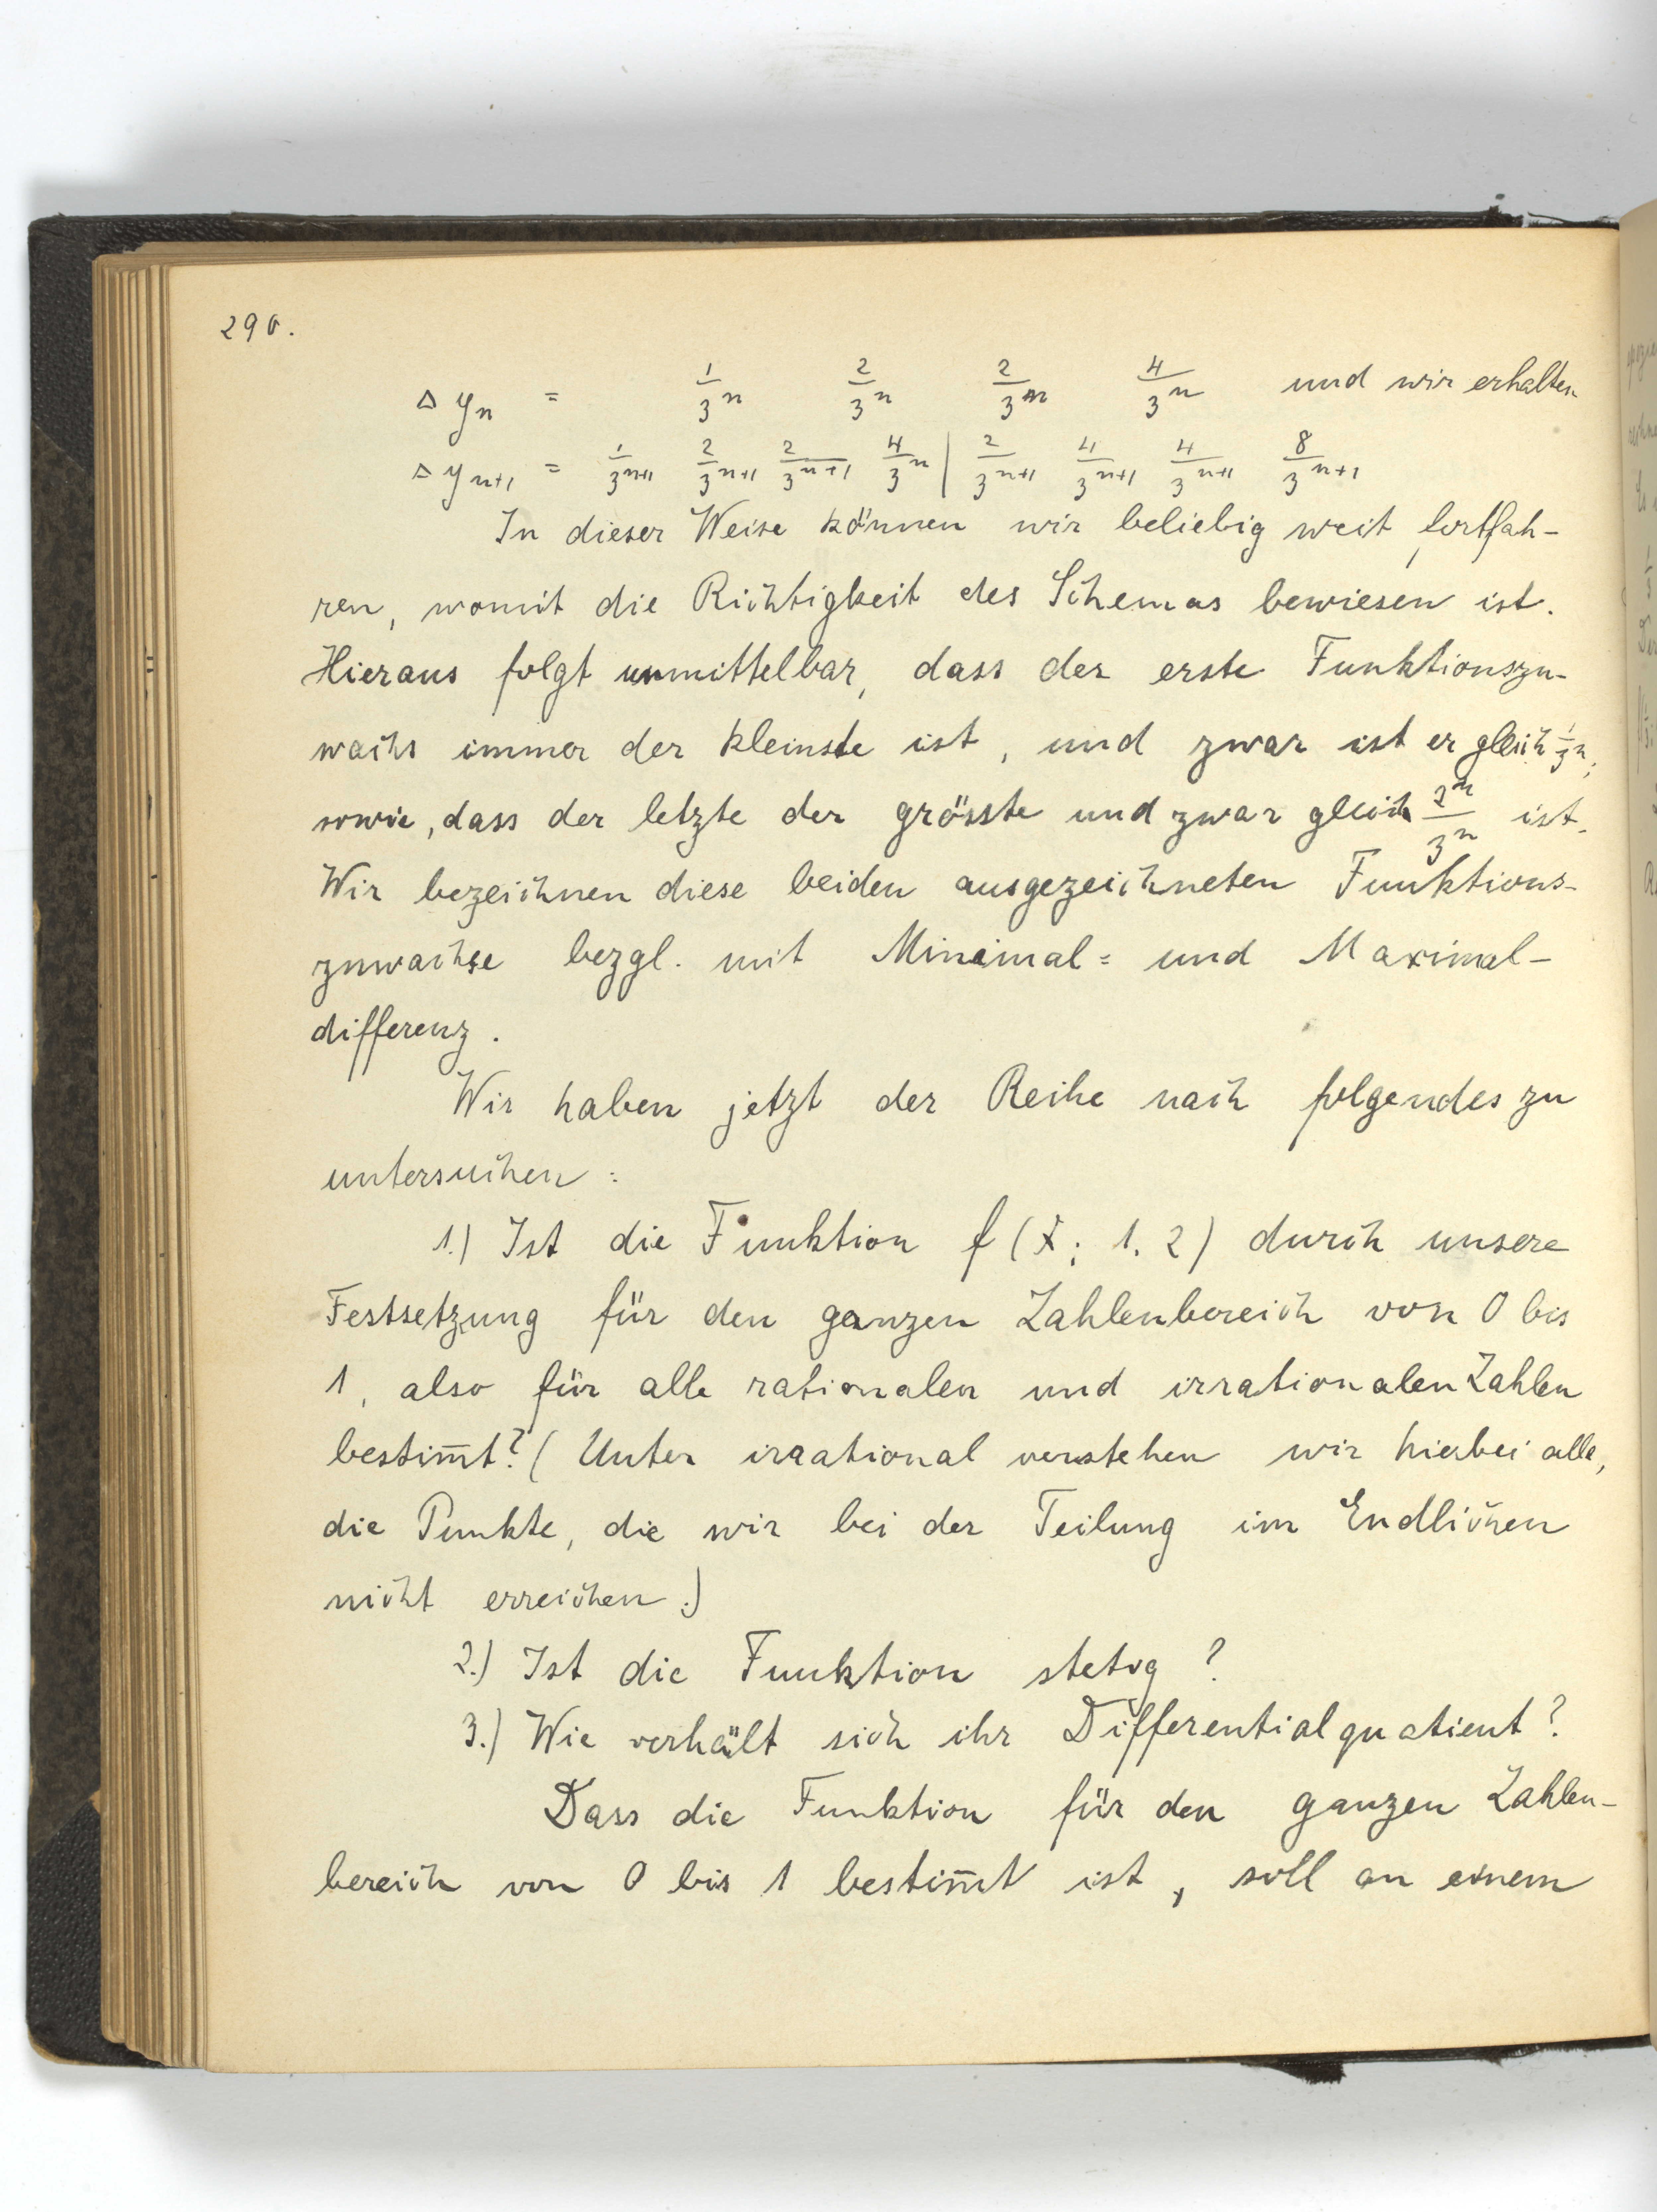 290.
Δ yₙ = 1/3ⁿ 2/3ⁿ 2/3ⁿ 4/3ⁿ und wir erhalten
Δ yₙ₊₁ = 1/3ⁿ⁺¹ 2/3ⁿ⁺¹ 2/3ⁿ⁺¹ 4/3ⁿ | 2/3ⁿ⁺¹ 4/3ⁿ⁺¹ 4/3ⁿ⁺¹ 8/3ⁿ⁺¹
In dieser Weise können wir beliebig weit fortfah-
ren, womit die Richtigkeit des Schemas bewiesen ist.
Hieraus folgt unmittelbar, dass der erste Funktionszu-
wachs immer der kleinste ist, und zwar ist er gleich 1/3ⁿ;
sowie, dass der letzte der grösste und zwar gleich 2ⁿ/3ⁿ ist.
Wir bezeichnen diese beiden ausgezeichneten Funktions-
zuwachse bezgl. mit Minimal= und Maximal-
differenz.
Wir haben jetzt der Reihe nach folgendes zu
untersuchen:
1.) Ist die Funktion f (x; 1, 2) durch unsere
Festsetzung für den ganzen Zahlenbereich von 0 bis
1, also für alle rationalen und irrationalen Zahlen
bestim̅t? (Unter irrational verstehen wir hierbei alle,
die Punkte, die wir bei der Teilung im Endlichen
nicht erreichen.)
2.) Ist die Funktion stetig?
3.) Wie verhält sich ihr Differentialquotient?
Dass die Funktion für den ganzen Zahlen-
bereich von 0 bis 1 bestim̅t ist, soll an einem